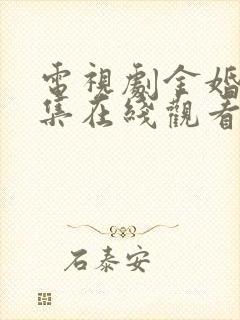 電視劇金婚
集在綫觀看
石泰安